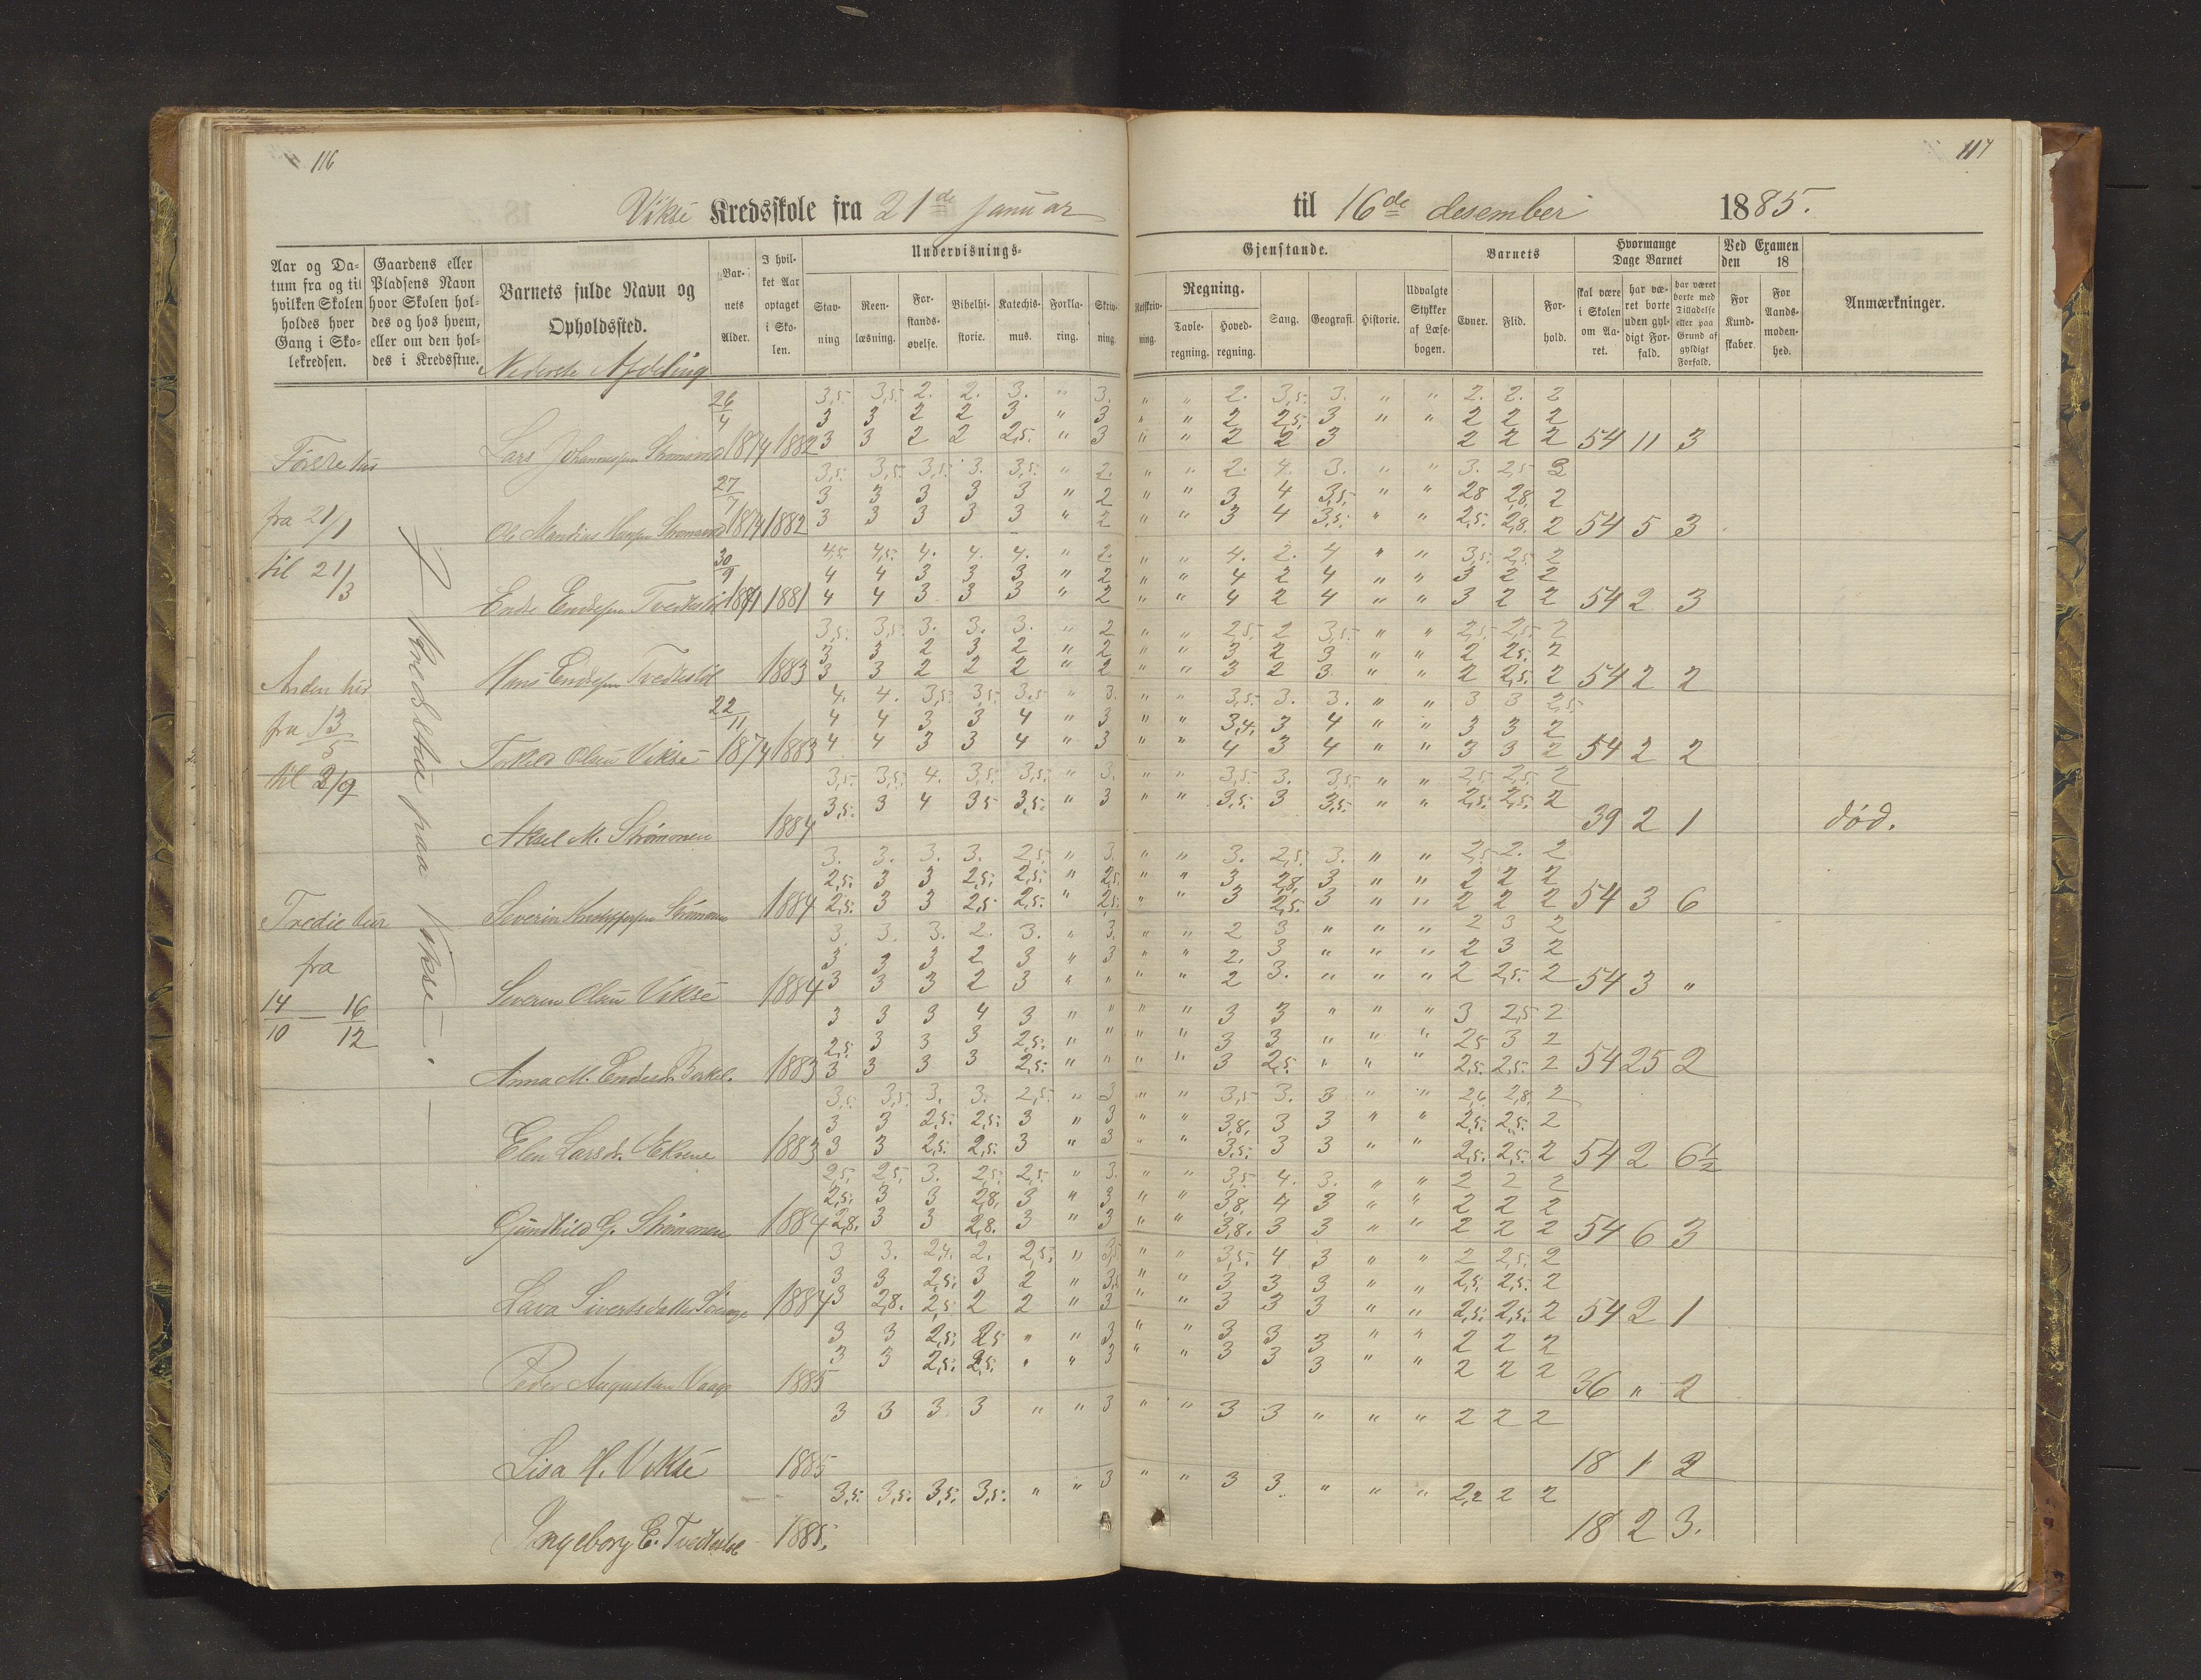 116
117
Viksé Kredsskole fra 21de januar til 16de desember 1885.
Aar og Datum fra og til hvilken Skolen holdes hver Gang i Skolekredsen.
Gaardens eller Pladsens Navn hvor Skolen holdes og hos hvem, eller om den holdes i Kredsstue.
Barnets fulde Navn og Opholdssted.
Barnets Alder.
I hvilket Aar optaget i Skolen.
Undervisnings-
Stavning
Reenlæsning.
Forstandsøvelse.
Bibelhistorie.
Katechismus.
Forklaring.
Skrivning.
Gjenstande.
Retskrivning.
Regning.
Tavleregning.
Hovedregning.
Sang.
Geografi.
Historie.
Udvalgte Stykker af Læsebogen.
Barnets
Evner.
Flid.
Forhold.
Hvormange Dage Barnet
skal være i Skolen om Aaret.
har været borte uden gyldigt Forfald.
har været borte med Tilladelse eller paa Grund af gyldigt Forfald.
Ved Examen den 18
For Kundskaber.
For Aandsmodenhed.
Anmærkninger.
Nederste Afdeling
26/4
3,5. 3,5. 2. 2. 3. " 3. " " 2. 3,5. 3. " " 2. 2. 2
3 3 2 2 3 " 3 " " 2 2,5. 3 " " 2 2 2
Lars Johannessen 1874 1882 3 3 2 2 2,5. " 3 " " 2 2 3 2 2 2 54 11 3
fra 21/1
27/7
3,5. 3,5. 3,5. 3. 3,5. " 2. " " 2. 4. 3. " " 3. 2,5 2
3 3 3 3 3 " 2 " " 3 4 3,5. " " 28 2,8. 2
Ole 1874 1882 3 3 3 3 3 " 2 " " 3 4 3,5. " " 2,5. 2,8. 2 54 5 3
til 21/3
30/9
4,5 4,5. 4. 4. 4. " 2. " " 4. 2. 4 " " 3,5. 2,5. 2
4 4 3 3 3 " 2 " " 4 2 4 " " 3 2 2
Endre Endresen 1881 4 4 3 3 3 " 2 " " 4 2 4 " " 3 2 2 54 2 3
3,5. 3,5. 3. 3. 3. " 2 " " 2,5. 2 3,5. " " 2,5. 2,5. 2
3 3 2 3 2 " 2 " " 3 2 3 " " 2 2,5. 2
Hans Endresen 1883 3 3 2 2 2 " 2 " " 3 2 3 " " 2 2,5. 2 54 2 2
fra 13/5
22/11
4. 4. 3,5. 3,5. 3,5 " 3. " " 3,5. 3. 3. " " 3 3 2,5.
4 4 3 3 4 " 3 " " 3,4. 3 4 " " 3 3 2
Torkild Olsen Viksé 1874 1883 4 4 3 3 4 " 3 " " 4 3 4 " " 3 3 2 54 2 2
til 3/9
3,5. 3,5. 4. 3,5. 3,5. " 3. " " 3,5. 3. 3,5. " " 2,5. 2,5. 2
3,5. 3 4 35 3,5. " 3 " " 3,5. 3 3,5. " " 2,5. 2,5. 2
Aksel M. Strømønen 1884 39 2 1 død.
I Kredsstue paa Viksé.
3. 3. 3. 3. 2,5. " 3. " " 3. 2,5. 3. " " 2,5. 2. 2
2,5. 3 3 2,5. 2,5. " 2,5. " " 3 2,8. 3 " " 2 2 2
Severin 1884 2,5. 3 3 2,5. 2,5. " 2,5. " " 3 2,5. 3 " " 2 2 2 54 3 6
Tredie
fra
14/10 — 16/12
3. 3. 3. 2. 3. " 3. " " 2 3 " " " 2 3 2
3 3 3 2 3 " 3 " " 2. 3 " " " 2 3 2
Severin Olsen Viksé 1884 3 3 3 2 3 " " " " 2 3. " " " 2 2,5. 2 54 3 "
3 3 3 4 3 " " " " 3 3 " " " 3 2,5 2
2,5. 3 3 3 2,5. " " " " 3 3 " " " 25 3 2
Anna M. 1883 3 3 3 3 2,5. " " " " 3 2,5. " " " 2,5. 2,5. 2 54 25 2
3,5. 3,5. 3. 3. 2,5. " 3 " " 3,5 3. 3 " " 2,6. 2,8. 2
3 3 2,5. 2,5. 3 " 3 " " 3,8. 3 3 " " 2,5. 2,5. 2
Elen Larsd. 1883 3 3 2,5. 2,5. 3 " 3 " " 3,5. 3 3 " " 2,5. 2,5. 2 54 2 6½
2,5. 2,5. 3. 2,5. 2,5. " 3. " " 3,5 4. 3. " " 2 2 2
2,5. 3 3 2,8. 3 " 3 " " 3,8. 4 3 " " 2 2 2
Gundhild G. Strømønen 1884 2,8. 3 3 2,8. 3 " 3 " " 3,8. 3 3 " " 2 2 2 54 6 3
3 3. 2,4. 2. 2,5. " 3,5 " " 3,5. 4 3 " " 2 2,5. 2
3 3 2,5. 3 2 " 3,5 " " 3 3 3 " " 2,5. 2,5. 2
Lava Sivertsdatter 1884 3 2,8. 2,5 2 2 " 3 " " 3 3 3 " " 2,5. 2,5. 2 54 2 1
3 3 2,5. 2,5 " " 3 " " 3 3 3 " " 2 2 2
3 3 2,5. 2,5. " " 3 " " 3 3 3 " " 2 2 2
Peder Augustsen Vaage 1885 36 " 2
3 3 3 3 " " 3 " " 3 3 " " " 2 2 2
Lisa H. Viksé 1885 18 1 2
3,5. 3,5. 3,5. 3,5. " " 3 " " 3 3. " " " 2,2 2 2
Ingeborg E. 1885. 18 2 3.